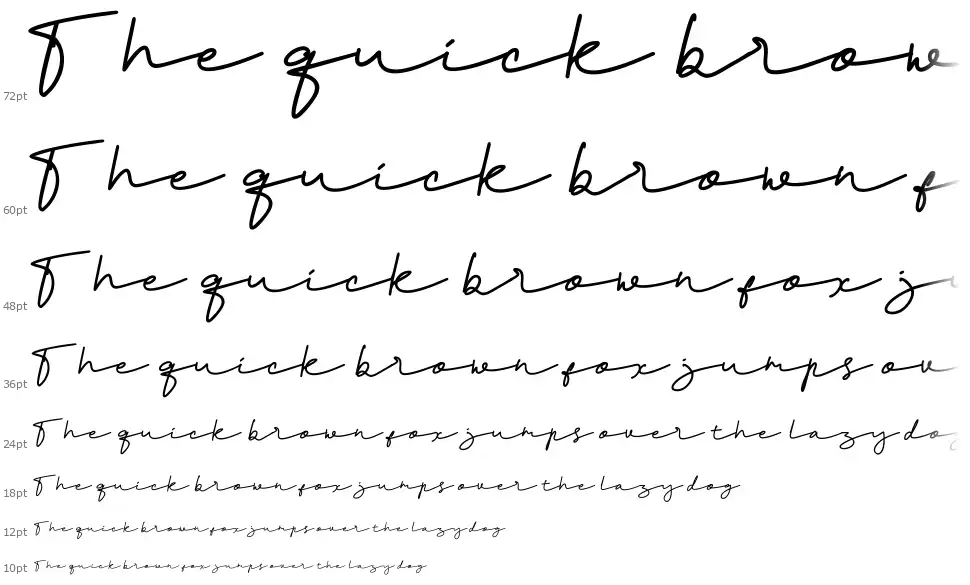 The quick brow
72pt
The quick brown f
60pt
The quick brown fox ju
48pt
The quick brown fox jumps ov
36pt
The quick brown fox jumps over the lazy dog
24pt
The quick brown fox jumps over the lazy dog
18pt
The quick brown fox jumps over the lazy dog
12pt
The quick brown fox jumps over the lazy dog
10pt